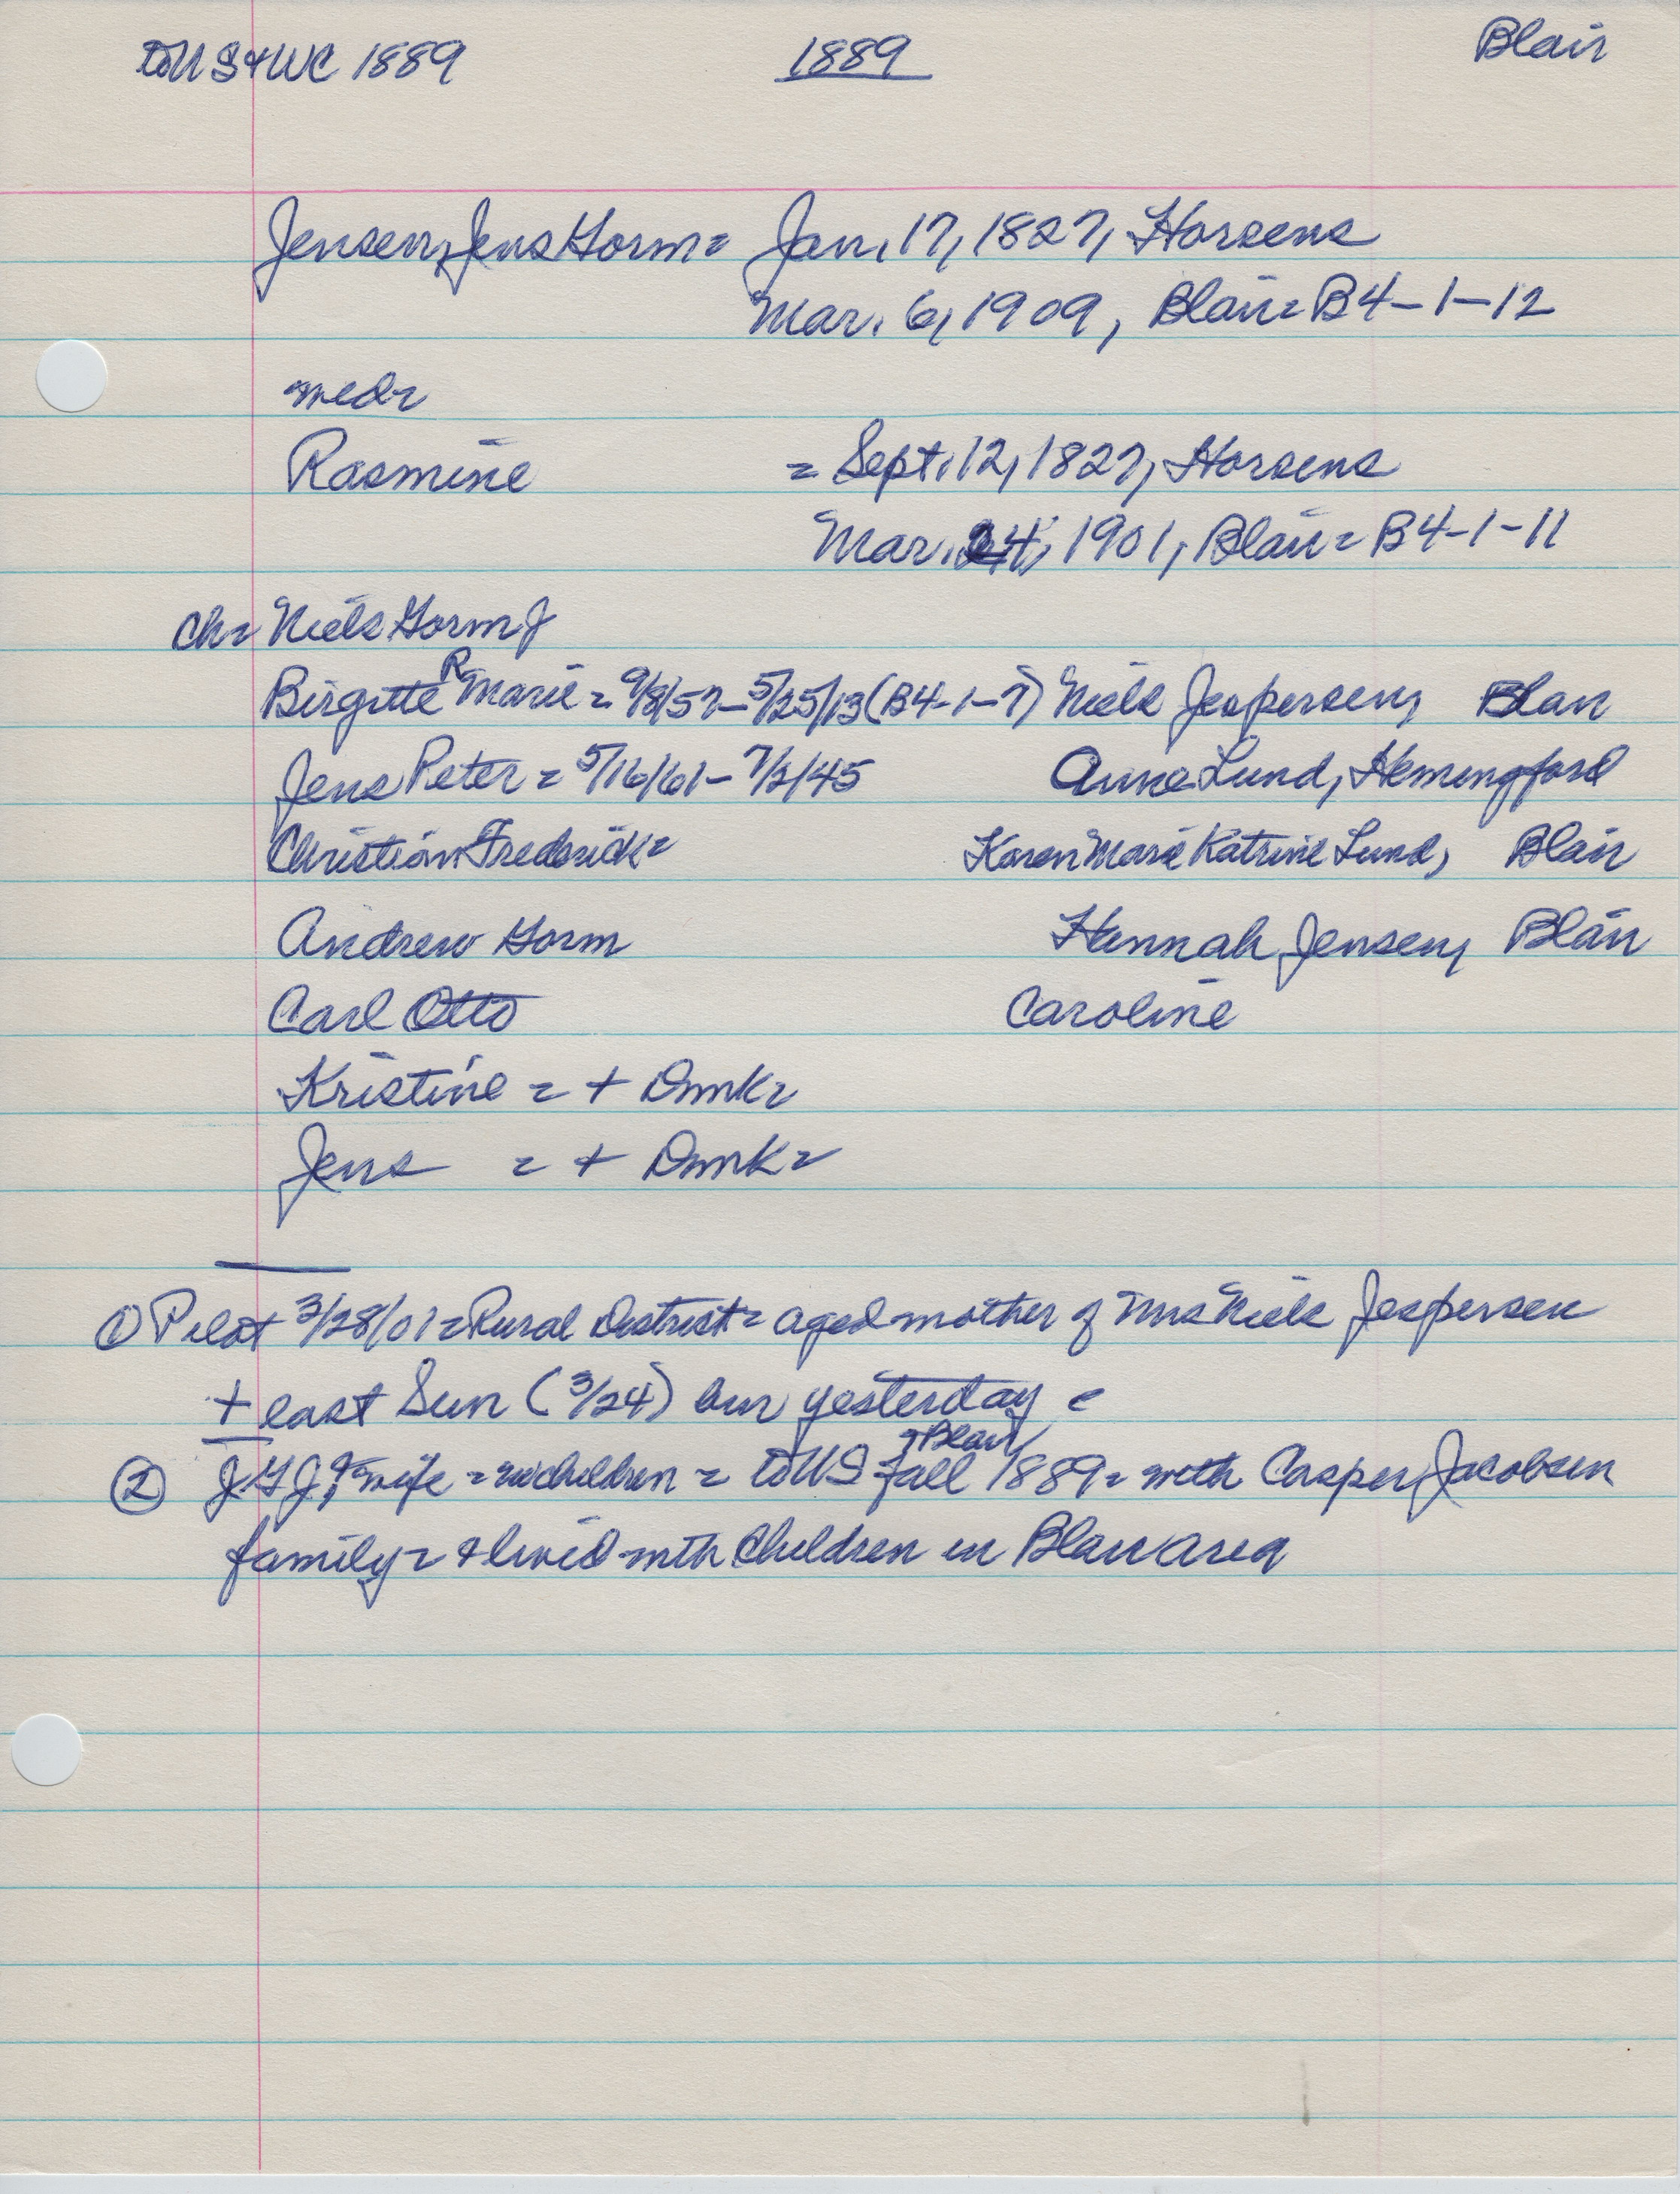 to US + WC 1889 1889 Blair
Jensen, Jens Gorm = Jan. 17, 1827, Horsens
Mar. 6, 1909, Blair = B4-1-12
med =
Rasmine = Sept. 12, 1827, Horsens
Mar. 24, 1901, Blair = B4-1-11
Ch = Niels Gorm J
Birgitte R Marie = 9/8/57 - 5/25/13 (B4-1-7) Niels Jespersen, Blair
Jens Peter = 5/16/61 - 7/2/45 Anne Lund, Hemingford
Christian Frederick = Karen Marie Katrine Lund, Blair
Andrew Gorm Hannah Jensen, Blair
Carl Otto Caroline
Kristine = + Dmk =
Jens = + Dmk =
① Pilot 3/28/01 = Rural District = aged mother of Mrs Niels Jespersen
+ last Sun (3/24) bur yesterday =
② JGJ + wife = children = to US + Blair fall 1889 = with Casper Jacobsen
family = + lived with Children in Blair area